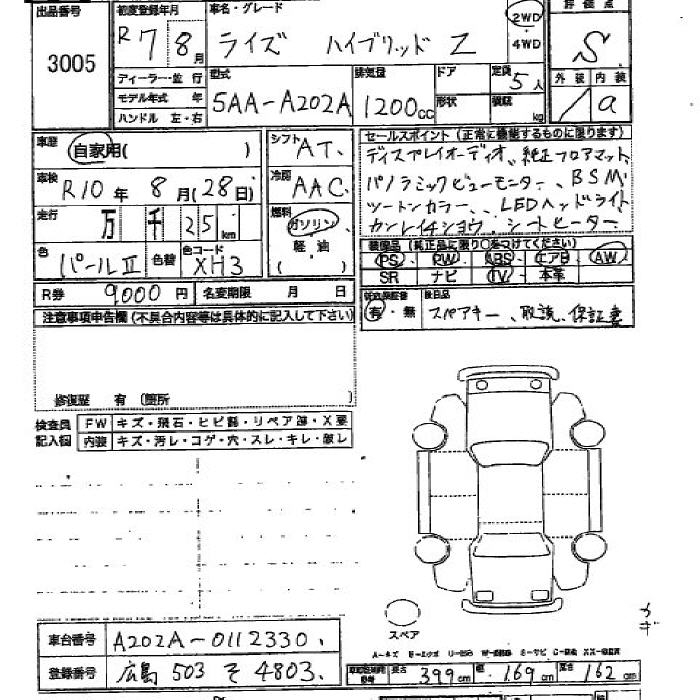 出品番号 初度登録年月 車名・グレード 2WD 評価点
3005 R7 8月 ライズ ハイブリッド Z ・4WD S
ディーラー・並行 型式 排気量 ドア 定員 5人 外装 内装
モデル年式 年 5AA-A202A 1200cc 形状 積載 kg / a
ハンドル 左・右
車歴 自家用( ) シフト AT、 セールスポイント (正常に機能するものに限ります)
車検 R10年 8月(28日) 冷房 AAC ディスプレイオーディオ、純正フロアマット
走行 万 千 25km 燃料 ガソリン パノラミックビューモニター、BSM
軽・油 ツートンカラー、LEDヘッドライト
( ) カンレイチショウ、シートヒーター
色 パールⅡ 色替 色コード XH3 装備品 (純正品に限り○をつけてください)
PS・PW・ABS・エアB・AW
SR ナビ TV・本革
R券 9000円 名変期限 月 日 有・無 後日品
スペアキー、取説、保証書
注意事項申告欄 (不具合内容等は具体的に記入して下さい)
修復歴 有 (箇所
検査員 FW キズ・飛石・ヒビ割・リペア跡・X要
記入欄 内装 キズ・汚レ・コゲ・穴・スレ・キレ・破レ
スペア
車台番号 A202A-0112330
登録番号 広島 503 そ 4803
長さ 399cm 幅 169cm 高さ 162cm